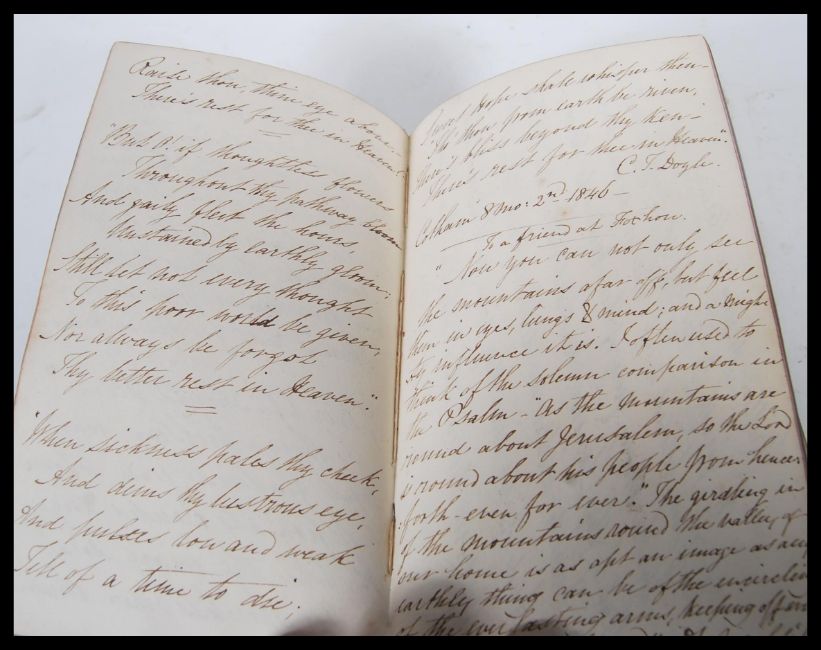 Raise thou, thine eye above—
There's rest for thee in Heaven."
"But O! if thoughtless flowers
Throughout thy pathway bloom
And gaily fleet the hours,
Unstained by earthly gloom;
Still let not every thought
To this poor world be given,
Nor always be forgot
Thy better rest in Heaven."
"When sickness pales thy cheek,
And dims thy lustrous eye,
And pulses low and weak
Tell of a time to die;
Sweet Hope shall whisper then—
"Tho' thou from earth be riven,
There's bliss beyond thy ken—
There's rest for thee in Heaven".
C. T. Doyle.
Cotham 8 mo: 2nd 1846—
To a friend at
"Now you can not only see
the mountains afar off, but feel
them in eyes, lungs & mind; and a might
influence it is. I often used to
think of the solemn comparison in
the Psalm—"As the mountains are
round about Jerusalem, so the Lord
is round about his people from hence-
forth even for ever." The girdling in
of the mountains round the valley of
our home is as apt an image as any
earthly thing can be of the encirclin
of the everlasting arms, keeping off